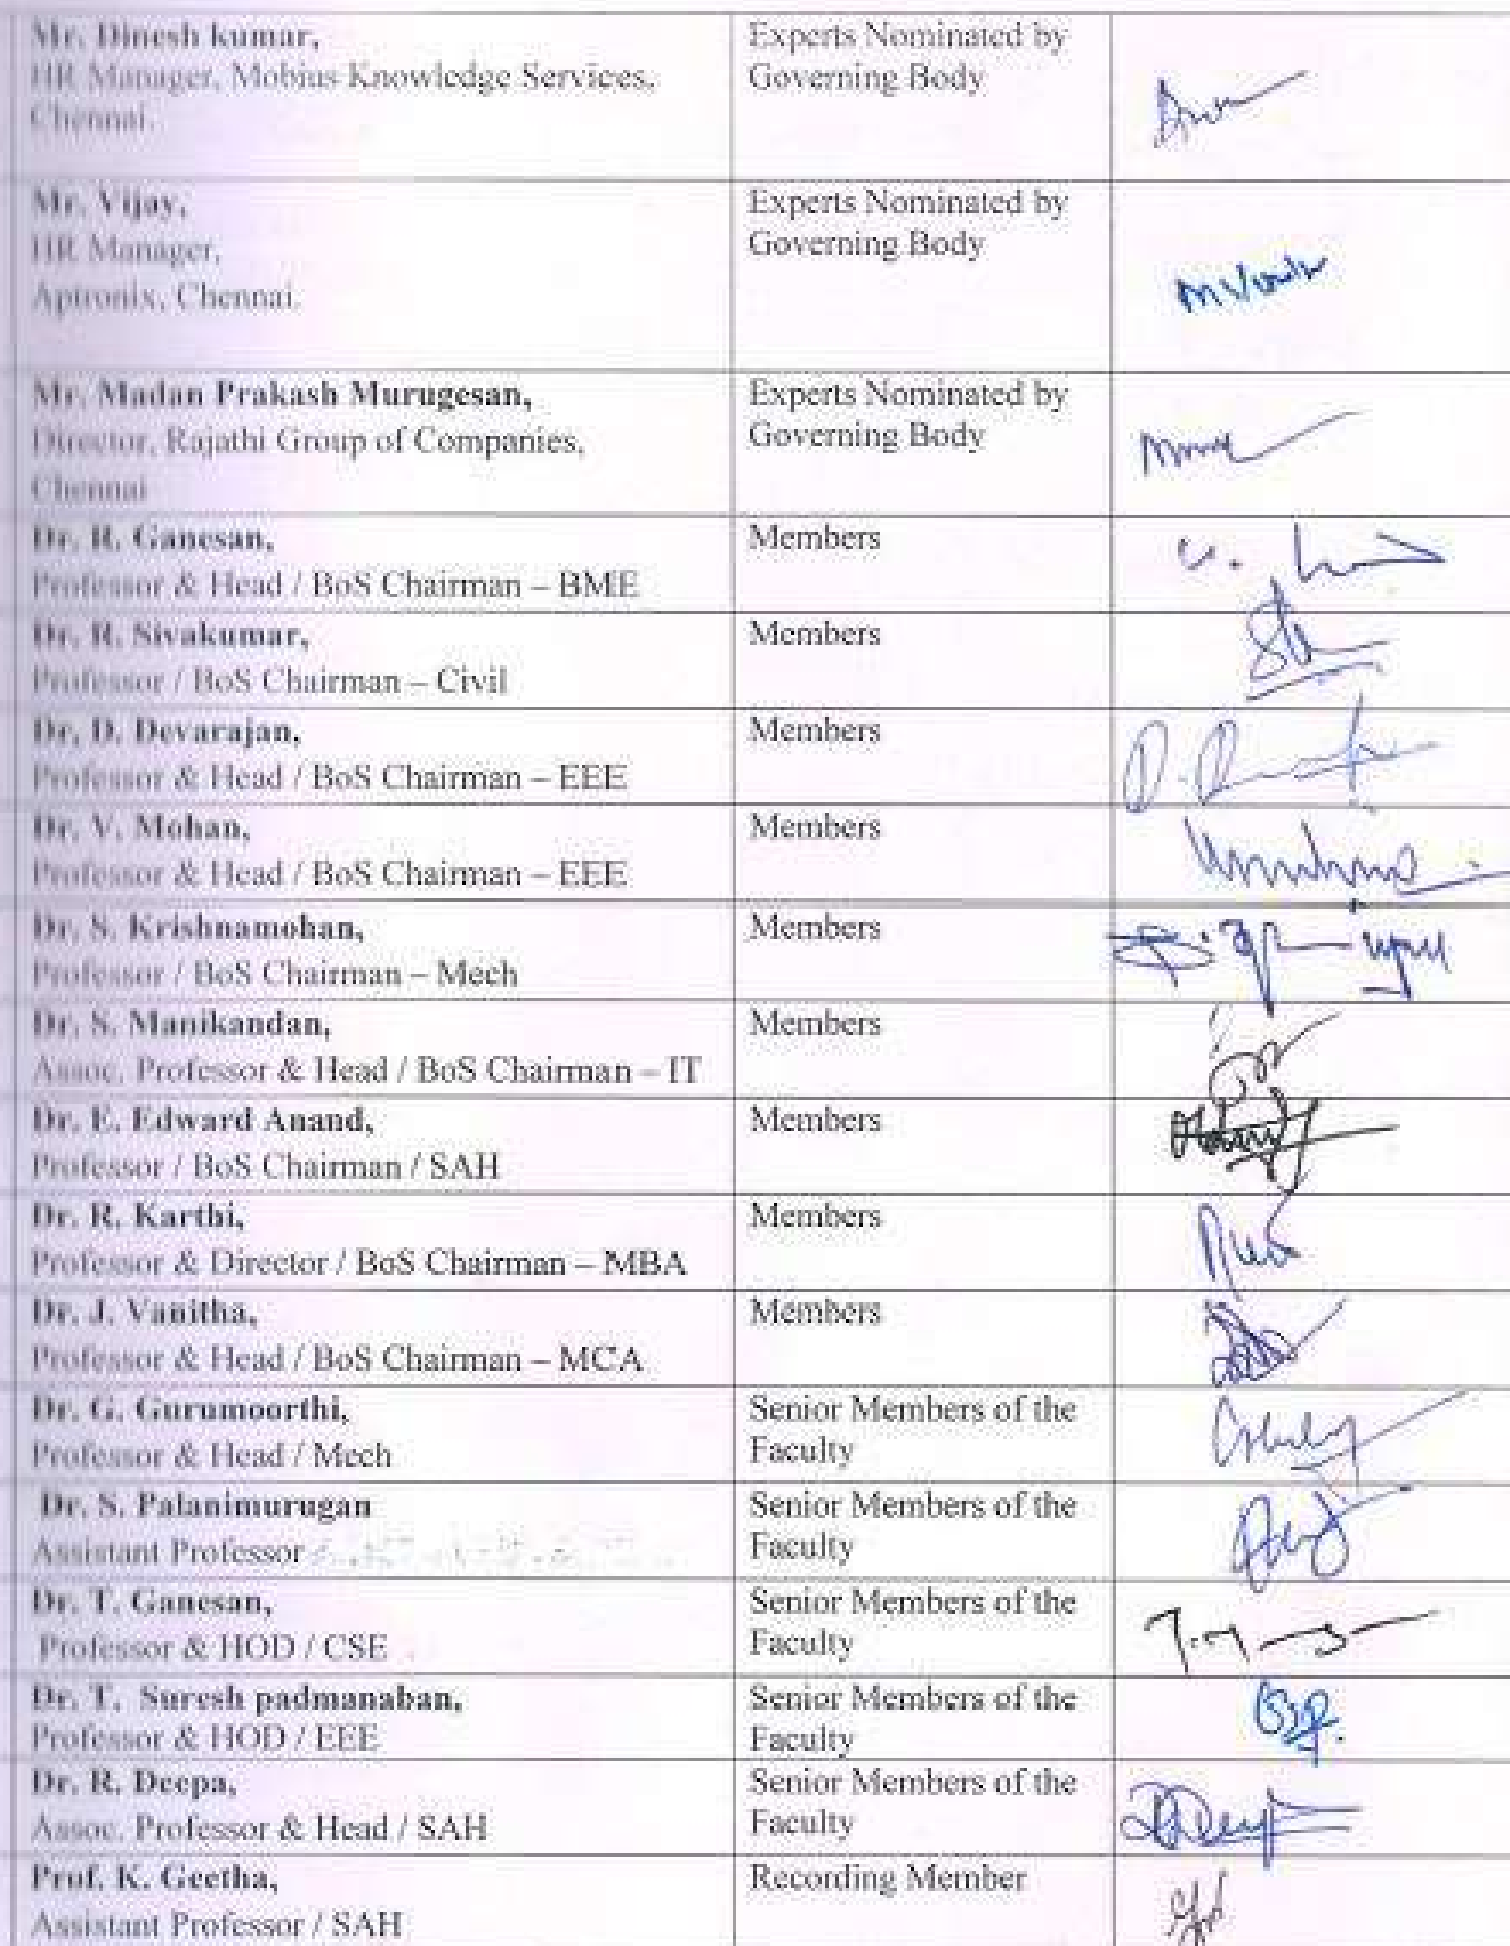 Mr. Dinesh kumar,
HR Manager, Mobius Knowledge Services,
Chennai.
Experts Nominated by
Governing Body
Mr. Vijay,
HR Manager,
Aptronix, Chennai.
Experts Nominated by
Governing Body
Mr. Madan Prakash Murugesan,
Director, Rajathi Group of Companies,
Chennai
Experts Nominated by
Governing Body
Dr. R. Ganesan,
Professor & Head / BoS Chairman – BME
Members
Dr. R. Sivakumar,
Professor / BoS Chairman – Civil
Members
Dr, D. Devarajan,
Professor & Head / BoS Chairman – EEE
Members
Dr. V. Mohan,
Professor & Head / BoS Chairman – EEE
Members
Dr. S. Krishnamohan,
Professor / BoS Chairman – Mech
Members
Dr. S. Manikandan,
Assoc. Professor & Head / BoS Chairman – IT
Members
Dr. E. Edward Anand,
Professor / BoS Chairman / SAH
Members
Dr. R. Karthi,
Professor & Director / BoS Chairman – MBA
Members
Dr. J. Vanitha,
Professor & Head / BoS Chairman – MCA
Members
Dr. G. Gurumoorthi,
Professor & Head / Mech
Senior Members of the
Faculty
Dr. S. Palanimurugan
Assistant Professor
Senior Members of the
Faculty
Dr. T. Ganesan,
Professor & HOD / CSE
Senior Members of the
Faculty
Dr. T. Suresh padmanaban,
Professor & HOD / EEE
Senior Members of the
Faculty
Dr. R. Deepa,
Assoc. Professor & Head / SAH
Senior Members of the
Faculty
Prof. K. Geetha,
Assistant Professor / SAH
Recording Member